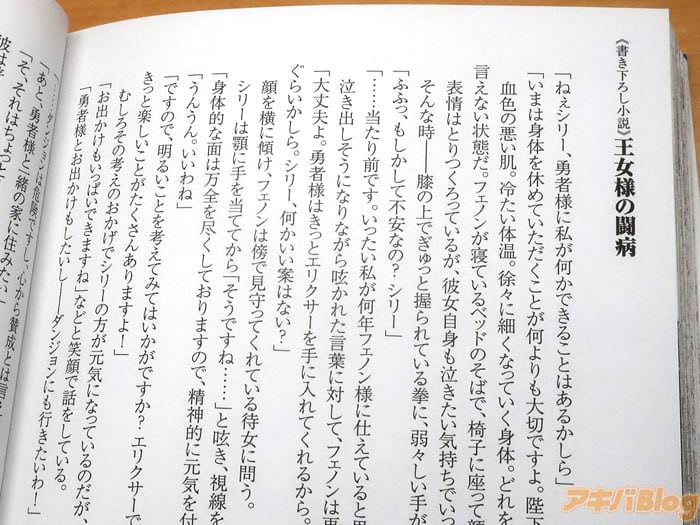 《書き下ろし小説》王女様の闘病
「ねぇシリー、勇者様に私が何かできることはあるかしら」
「いまは身体を休めていただくことが何よりも大切ですよ。陛下
血色の悪い肌。冷たい体温。徐々に細くなっていく身体。どれを
言えない状態だ。フェノンが寝ているベッドのそばで、椅子に座って
表情はとりつくろっているが、彼女自身も泣きたい気持ちでいっ
そんな時――膝の上でぎゅっと握られている拳に、弱々しい手が
「ふふっ、もしかして不安なの？ シリー」
「……当たり前です。いったい私が何年フェノン様に仕えていると思
泣き出しそうになりながら呟かれた言葉に対して、フェノンは
「大丈夫よ。勇者様はきっとエリクサーを手に入れてくれるから。
ぐらいかしら。シリー、何かいい案はない？」
顔を横に傾け、フェノンは傍で見守ってくれている侍女に問う。
シリーは顎に手を当ててから「そうですね……」と呟き、視線を
「身体的な面は万全を尽くしておりますので、精神的に元気を付
「うんうん。いいわね」
「ですので、明るいことを考えてみてはいかがですか？ エリクサーで
きっと楽しいことがたくさんありますよ！」
むしろその考えのおかげでシリーの方が元気になっているのだが、
「お出かけもいっぱいできますね」などと笑顔で話をしている。
「勇者様とお出かけもしたいし――ダンジョンにも行きたいわ！」
「……ダンジョンは危険ですし、心から賛成とは言え
「あと、勇者様と一緒の家に住みたい。」
「そ、それはちょっと
アキバBlog